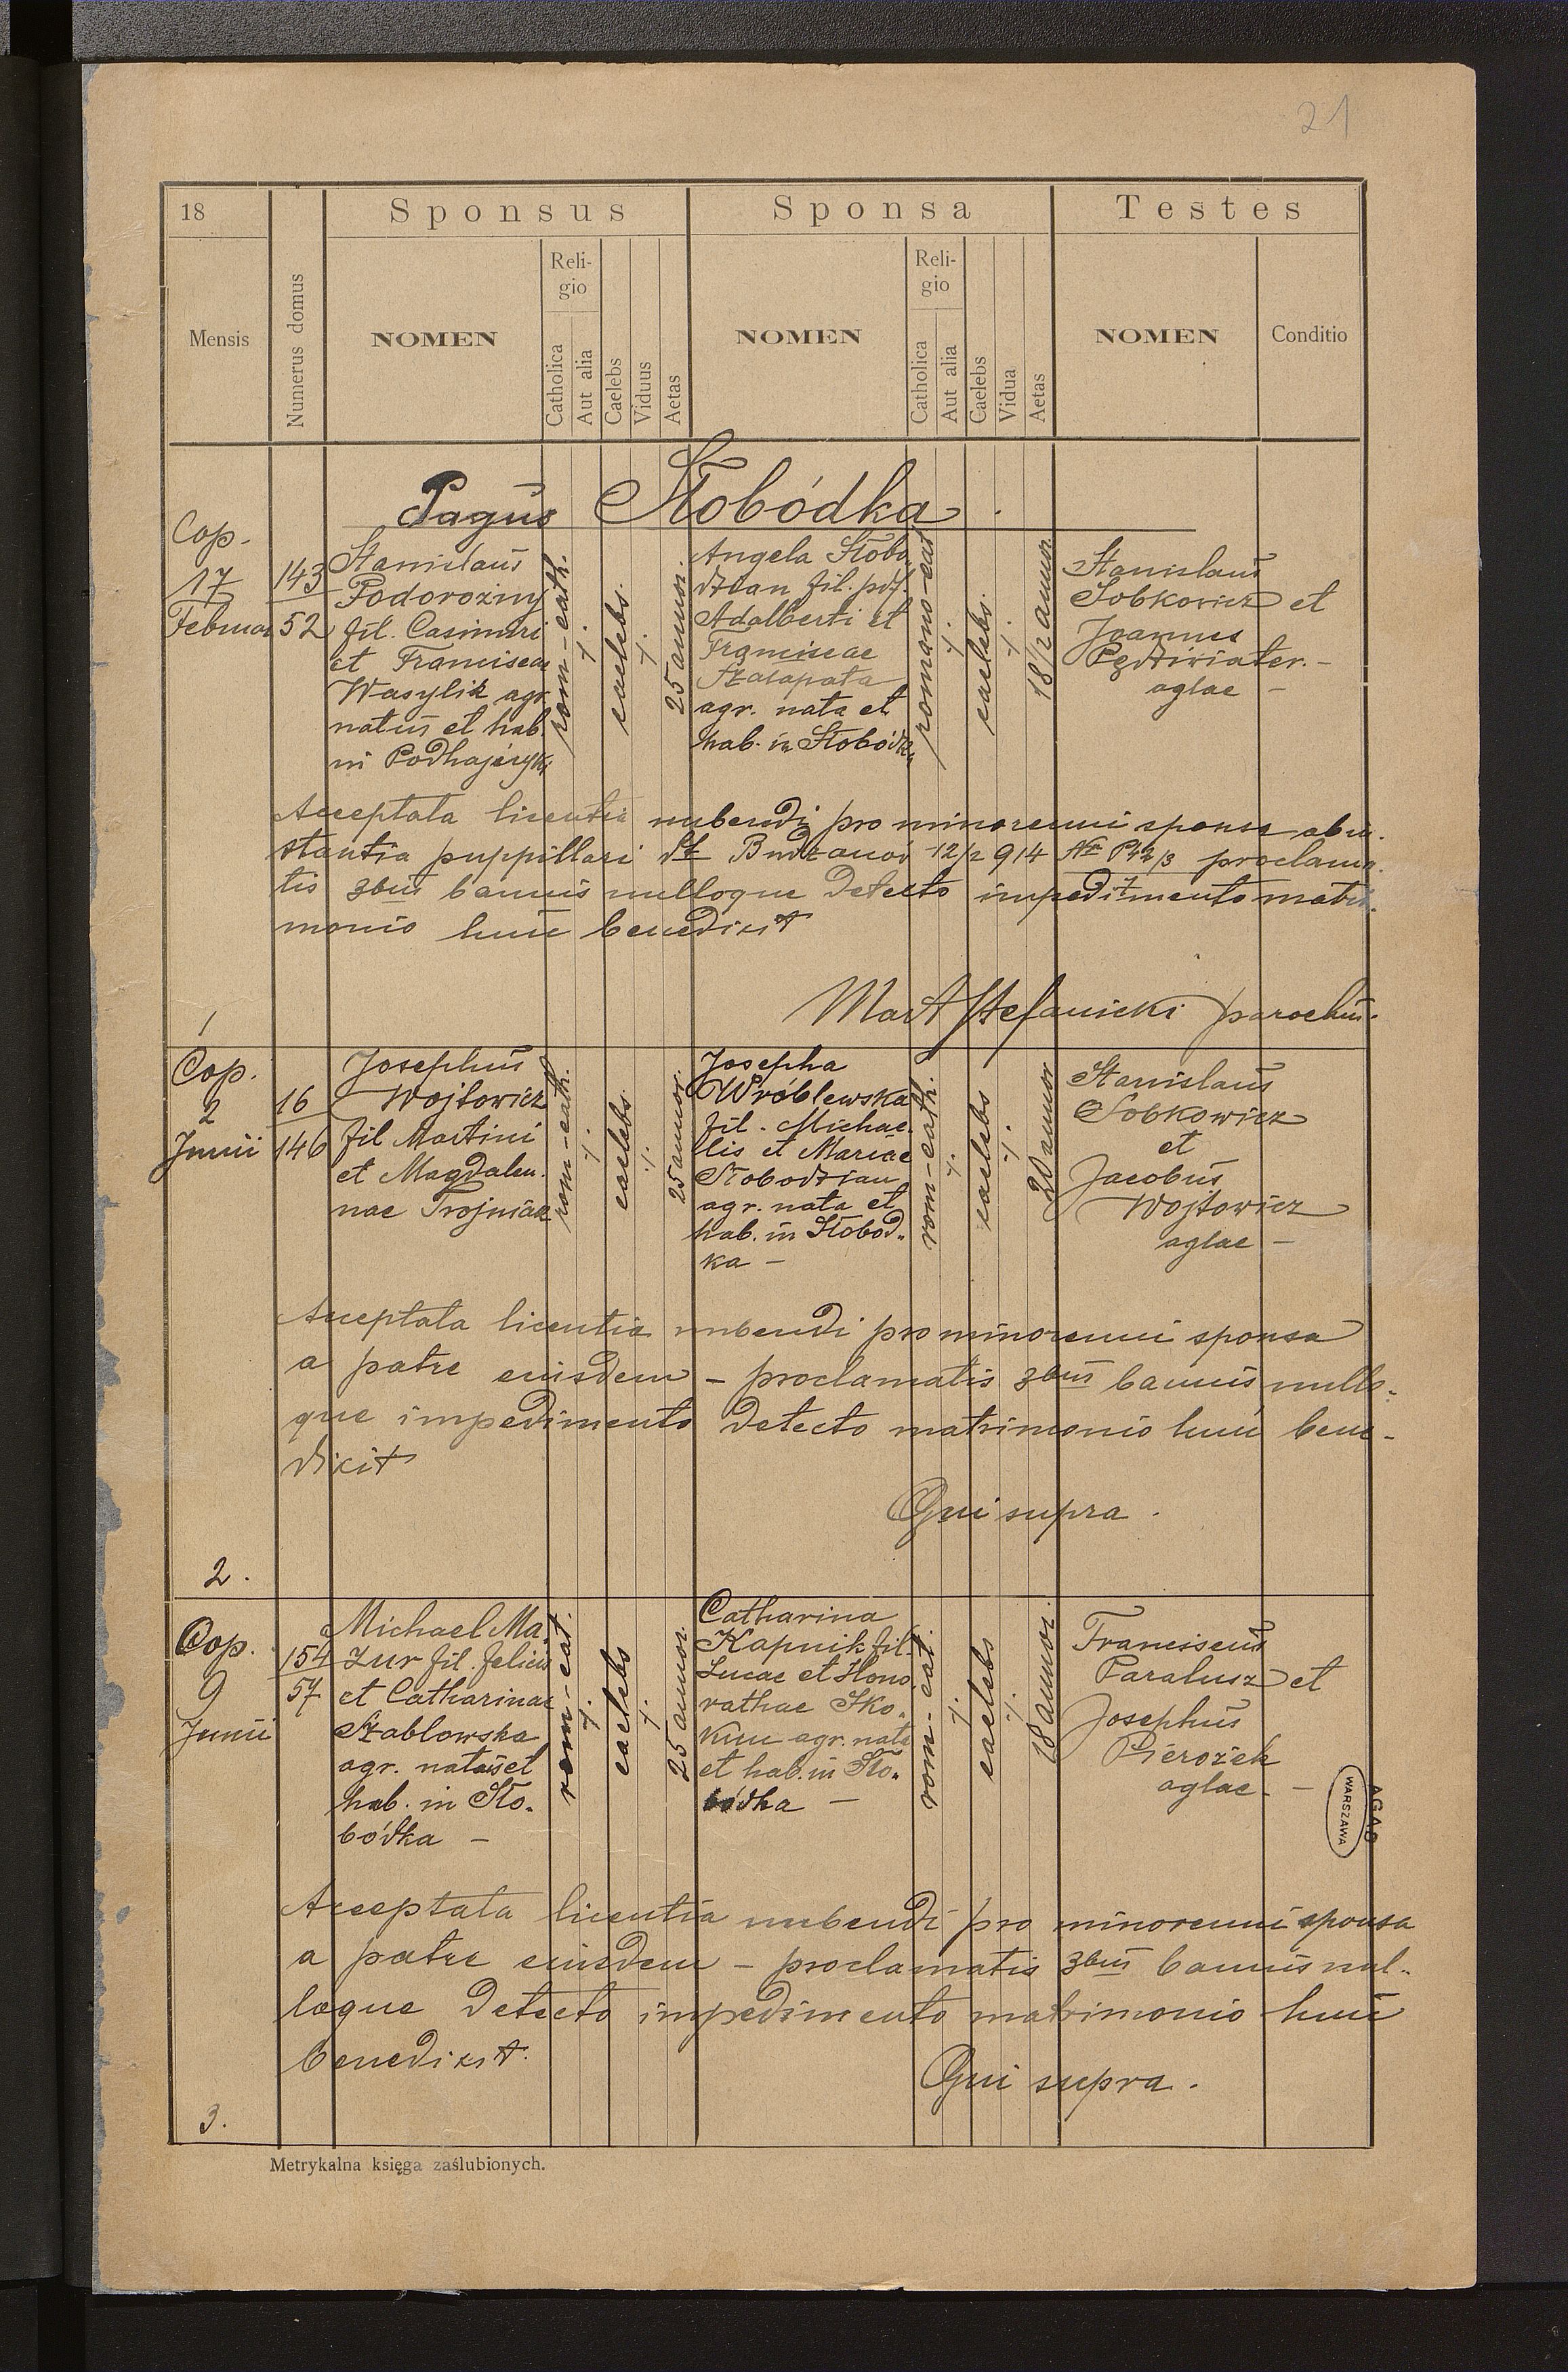 21
18
Sponsus
Sponsa
Testes
Mensis
Numerus domus
NOMEN
Reli-
gio
Catholica
Aut alia
Caelebs
Viduus
Aetas
NOMEN
Reli-
gio
Catholica
Aut alia
Caelebs
Vidua
Aetas
NOMEN
Conditio
Pagus Słobódka.
Cop.
17
Februar
143
52
Stanislaus
Podorożny
fil. Casimiri
et Franciscae
Wasylik agr.
natus et hab.
in Podhajczyki
rom-cath.
caelebs.
25 annor.
Angela Słobo
dzian fil. pdf.
Adalberti et
Franciscae
agr. nata et
hab. in Słobódka
romano-cat
caelebs.
18 1/2 annor.
Stanislaus
Sobkowicz et
Joannes
aglae –
Acceptata licentia nubendi pro minorenni sponsa ab in-
stantia puppillari dt Budzanów 12/2 914 Nr P 42/3 proclama-
tis 3bus bannis nulloque detecto impedimento matri-
monio huic benedixit
Mart Stefanicki parochus.
1
Cop.
2
Junii
16
146
Josephus
Wojtowicz
fil Martini
et Magdale-
nae Trojniak
rom-cath.
caelebs.
25 annor.
Josepha
Wróblewska
fil. Michae-
lis et Mariae
Słobodzian
agr. nata et
hab. in Słobód-
ka –
rom-cath.
caelebs
20 annor
Stanislaus
Sobkowicz
et
Jacobus
Wojtowicz
aglae –
Acceptata licentia nubendi pro minorenni sponsa
a patre eiusdem – proclamatis 3bus bannis nullo-
que impedimento detecto matrimonio huic bene-
dixit
Qui supra.
2.
Cop.
9
Junii
154
57
Michael Ma-
zur fil. Felicis
et Catharinae
Szablowska
agr. natus et
hab. in Sło-
bódka –
rom-cat.
caelebs
25 annor.
Catharina
Kapnik fil.
Lucae et Hono
rathae Sko-
kun agr. nata
et hab. in Sło-
bódka –
rom-cat.
caelebs
18 annor.
Franciscus
Paralusz et
Josephus
Pierożek
aglae. –
AGAD
WARSZAWA
Acceptata licentia nubendi pro minorenni sponsa
a patre eiusdem – proclamatis 3bus bannis nul-
loque detecto impedimento matrimonio huic
benedixit.
Qui supra.
3.
Metrykalna księga zaślubionych.